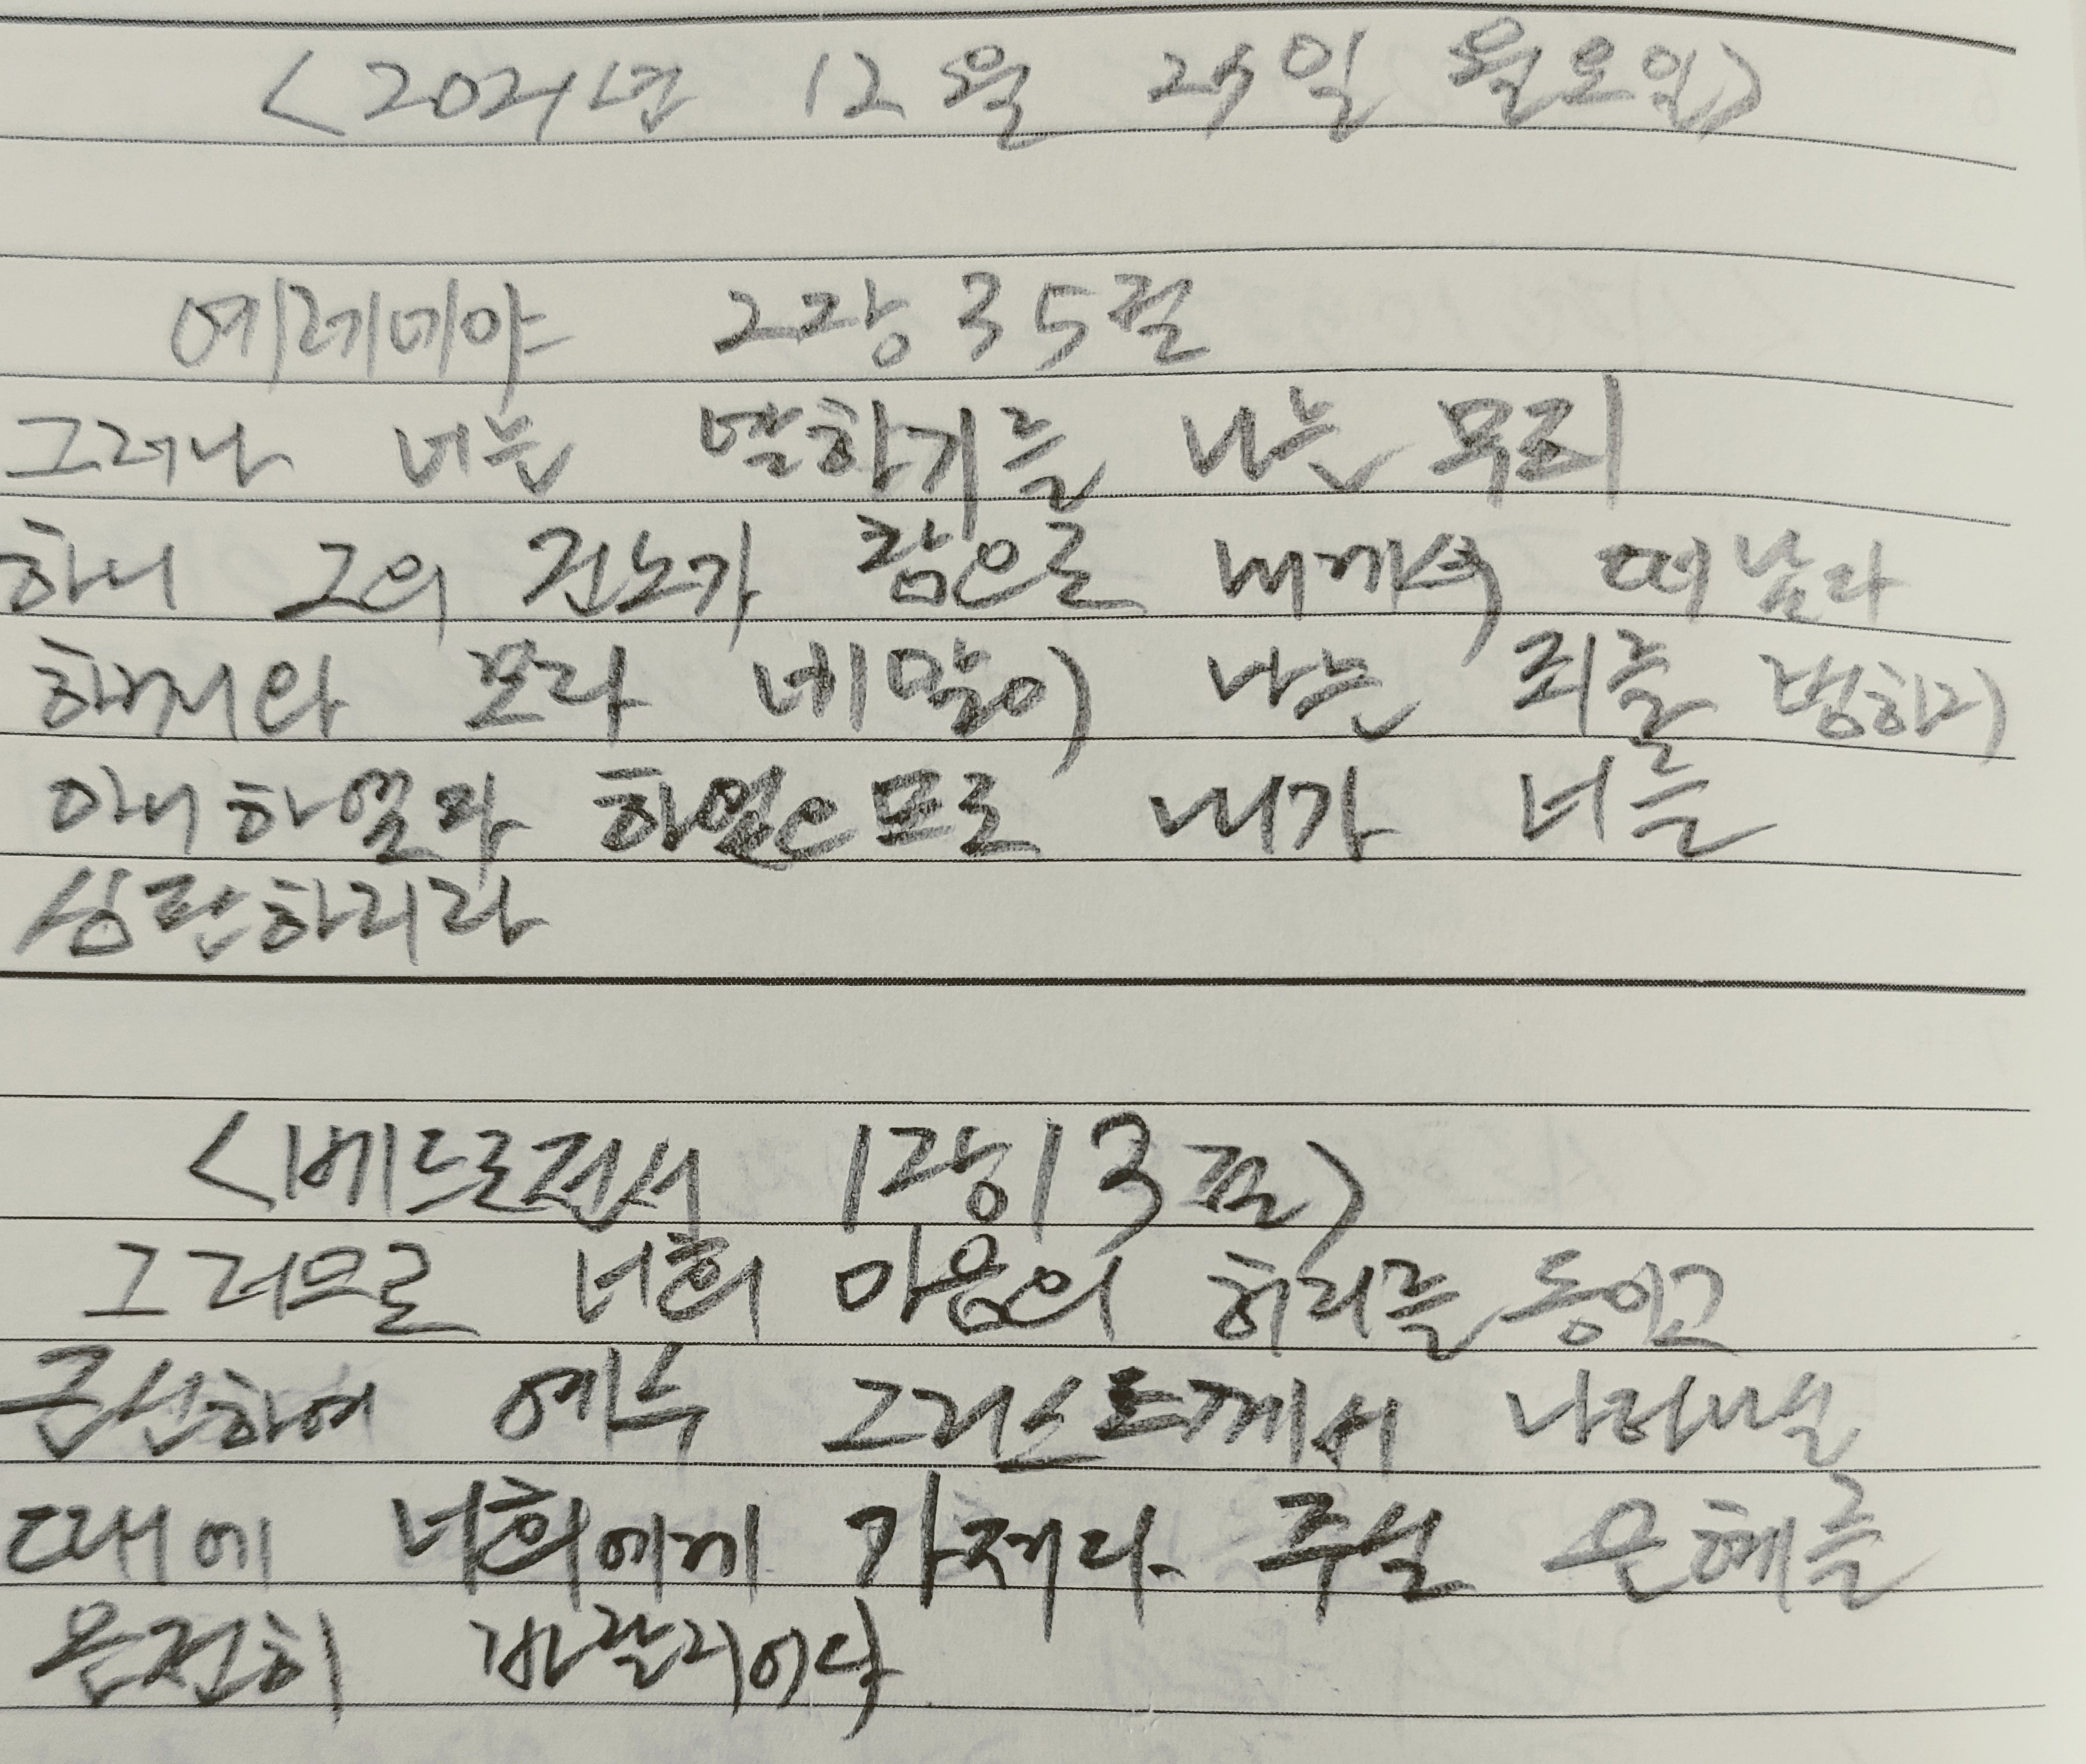 <2021년 12월 27일 월요일>
예레미야 2장 35절
그러나 너는 말하기를 나는 무죄
하니 그의 진노가 참으로 내게서 떠났다
하거니와 보라 네 말이 나는 죄를 범하지
아니하였다 하였으므로 내가 너를
심판하리라
<베드로전서 1장 13절>
그러므로 너희 마음의 허리를 동이고
근신하여 예수 그리스도께서 나타내실
때에 너희에게 가져다 주실 은혜를
온전히 바랄지어다